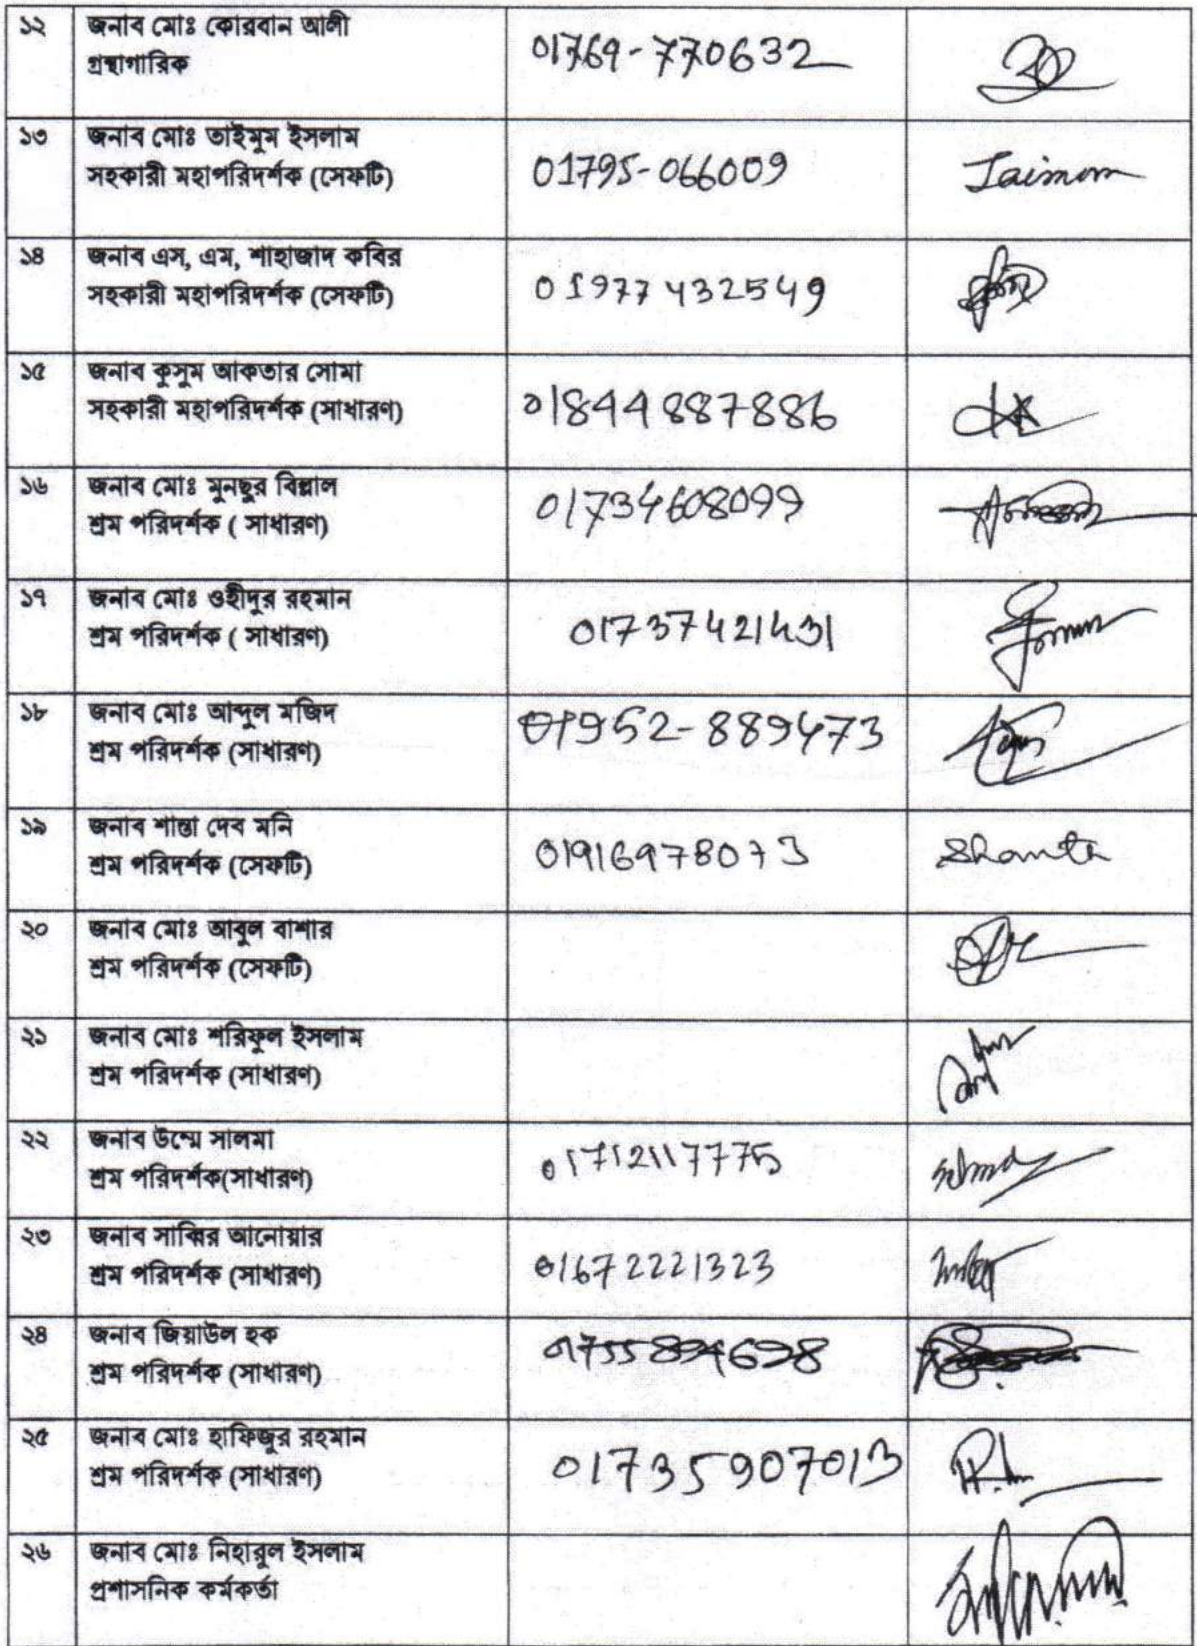 ১২ জনাব মোঃ কোরবান আলী 01769-770632
গ্রন্থাগারিক
১৩ জনাব মোঃ তাইমুম ইসলাম
সহকারী মহাপরিদর্শক (সেফটি) 01795-066009 Taimum
১৪ জনাব এস, এম, শাহাজাদ কবির
সহকারী মহাপরিদর্শক (সেফটি) 01977432549
১৫ জনাব কুসুম আকতার সোমা
সহকারী মহাপরিদর্শক (সাধারণ) 01844887886
১৬ জনাব মোঃ মুনছুর বিল্লাল
শ্রম পরিদর্শক ( সাধারণ) 01734608099
১৭ জনাব মোঃ ওহীদুর রহমান
শ্রম পরিদর্শক ( সাধারণ) 01737421431
১৮ জনাব মোঃ আব্দুল মজিদ 01952-889473
শ্রম পরিদর্শক (সাধারণ)
১৯ জনাব শান্তা দেব মনি
শ্রম পরিদর্শক (সেফটি) 01916978073 Shanta
২০ জনাব মোঃ আবুল বাশার
শ্রম পরিদর্শক (সেফটি)
২১ জনাব মোঃ শরিফুল ইসলাম
শ্রম পরিদর্শক (সাধারণ)
২২ জনাব উম্মে সালমা
শ্রম পরিদর্শক(সাধারণ) 01712117775 Salma
২৩ জনাব সাব্বির আনোয়ার
শ্রম পরিদর্শক (সাধারণ) 01672221323
২৪ জনাব জিয়াউল হক
শ্রম পরিদর্শক (সাধারণ)
২৫ জনাব মোঃ হাফিজুর রহমান
শ্রম পরিদর্শক (সাধারণ) 01735907013
২৬ জনাব মোঃ নিহারুল ইসলাম
প্রশাসনিক কর্মকর্তা